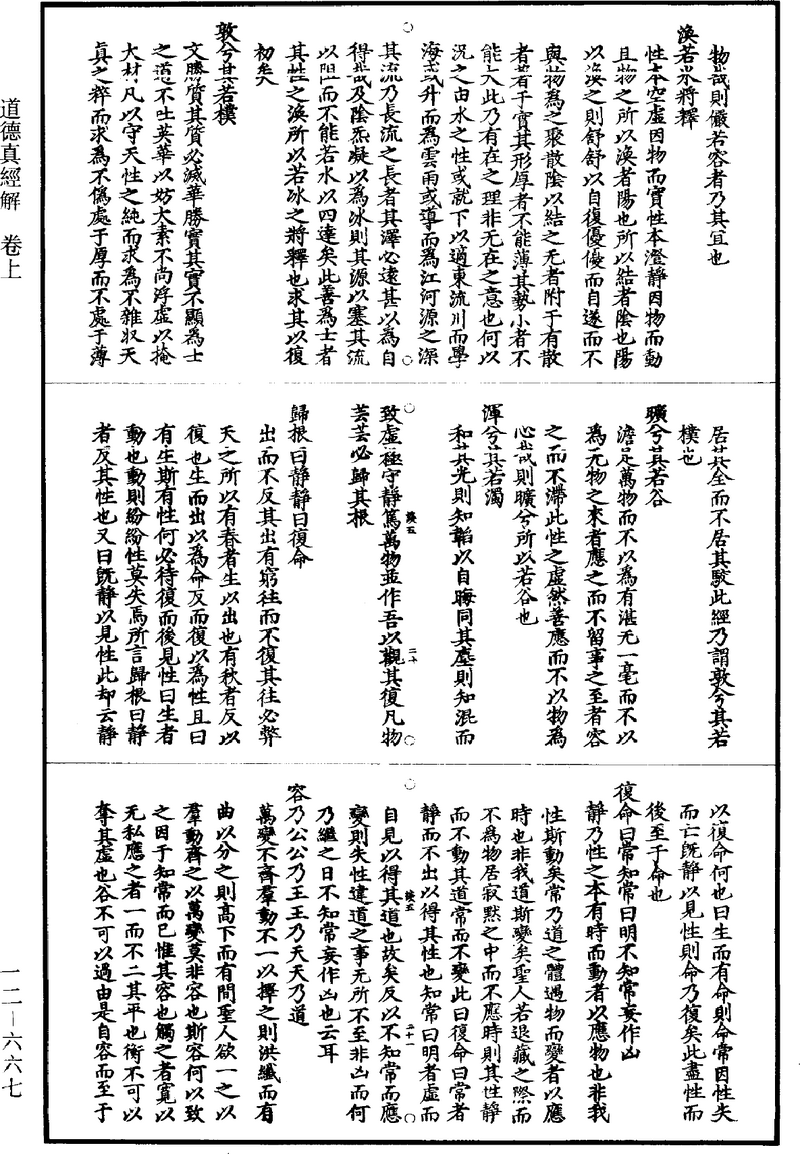 道德真經解　卷上
一二—六六七
物哉則儼若容者乃其宜也
渙若冰將釋
性本空虛因物而實性本澄靜因物而動
且物之所以渙者陽也所以結者陰也陽
以渙之則舒舒以自復優優而自遂而不
與物為之聚散陰以結之无者附于有散
者著于實其形厚者不能薄其勢小者不
能大此乃有在之理非无在之意也何以
況之由水之性或就下以適東流川而學
海或升而為雲雨或導而為江河源之深
其流乃長流之長者其澤必遠甚以為自
得哉及陰炁凝以為冰則其源以塞其流
以阻而不能若水以四達矣此善為士者
其性之渙所以若冰之將釋也求其以復
初矣
敦兮其若樸
文勝質其質必滅華勝實其實不顯為士
之道不吐英華以妨大素不尚浮虛以掩
大材凡以守天性之純而求為不雜収天
真之粹而求為不偽處于厚而不處于薄
居其全而不居其駮此經乃謂敦兮其若
樸也
曠兮其若谷
澹足萬物而不以為有湛无一毫而不以
為无物之來者應之而不留事之至者容
之而不滯此性之虛然善應而不以物為
心哉則曠兮所以若谷也
渾兮其若濁
和其光則知韜以自晦同其塵則知混而
致虛極守靜篤萬物並作吾以觀其復凡物
芸芸必歸其根
歸根曰靜靜曰復命
出而不反其出有窮往而不復其往必弊
天之所以有春者生以出也有秋者反以
復也生而出以為命反而復以為性且曰
有生斯有性何必待復而後見性曰生者
動也動則紛紛性莫失焉所言歸根曰靜
者反其性也又曰旣靜以見性此却云靜
以復命何也曰生而有命則命常因性失
而亡旣靜以見性則命乃復矣此盡性而
後至于命也
復命曰常知常曰明不知常妄作凶
靜乃性之本有時而動者以應物也非我
性斯動矣常乃道之體遇物而變者以應
時也非我道斯變矣聖人若退藏之際而
不為物居寂默之中而不應時則其性靜
而不動其道常而不變此曰復命曰常者
靜而不出以得其性也知常曰明者虛而
自見以得其道也故矣反以不知常而應
變則失性違道之事无所不至非凶而何
乃繼之日不知常妄作凶也云耳
容乃公公乃王王乃天天乃道
萬變不齊羣動不一以擇之則洪纖而有
曲以分之則高下而有間聖人欲一之以
羣動齊之以萬變莫非容也斯容何以致
之因于知常而已惟其容也觸之者寬以
无私應之者一而不二其平也衡不可以
奪其虛也谷不可以過由是自容而至于